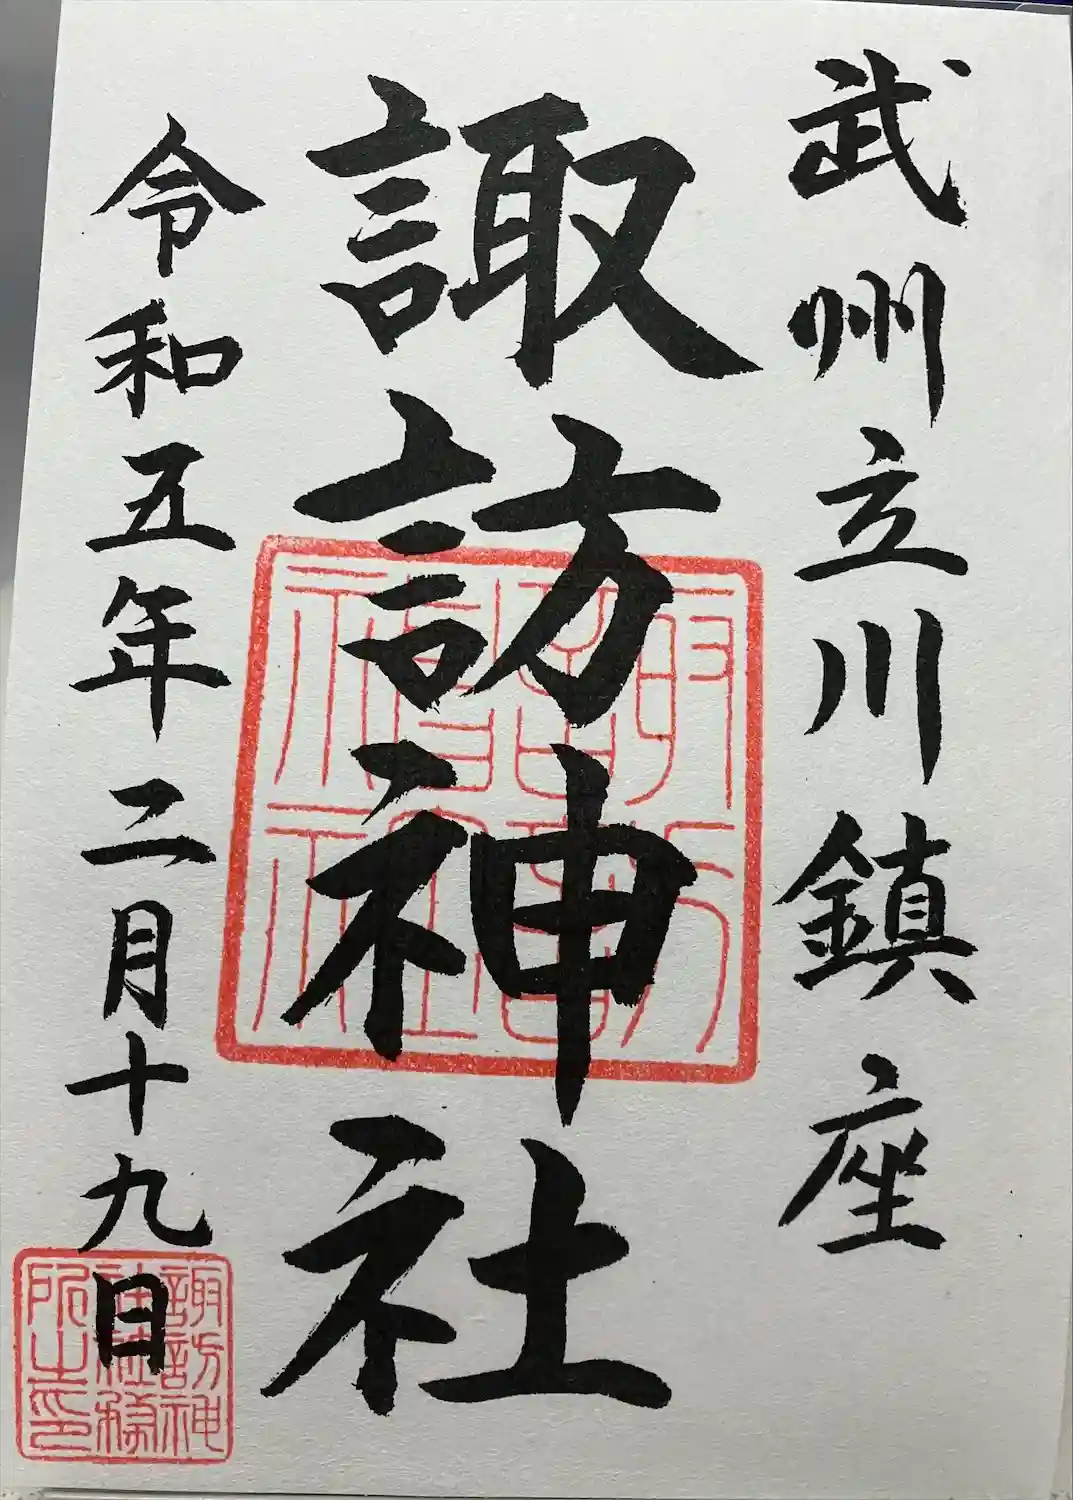 武州立川鎮座
諏訪神社
令和五年二月十九日
諏訪神社
諏訪神
社社務
所之印